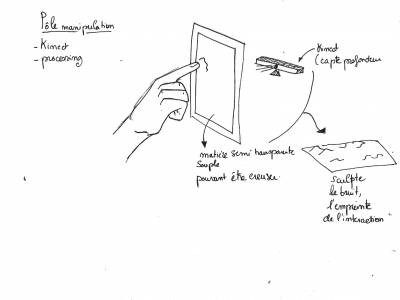 Pôle manipulation
- Kinect
- processing
Kinect
(capte profondeur
matière semi transparente
souple
pouvant être creuser.
sculpte
le bruit,
l'empreinte
de l'interaction